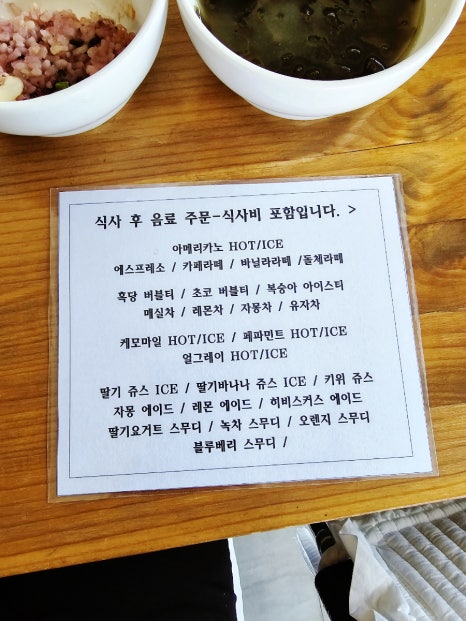 식사 후 음료 주문-식사비 포함입니다. >
아메리카노 HOT/ICE
에스프레소 / 카페라떼 / 바닐라라떼 /돌체라떼
흑당 버블티 / 초코 버블티 / 복숭아 아이스티
매실차 / 레몬차 / 자몽차 / 유자차
케모마일 HOT/ICE / 페파민트 HOT/ICE
얼그레이 HOT/ICE
딸기 쥬스 ICE / 딸기바나나 쥬스 ICE / 키위 쥬스
자몽 에이드 / 레몬 에이드 / 히비스커스 에이드
딸기요거트 스무디 / 녹차 스무디 / 오렌지 스무디
블루베리 스무디 /